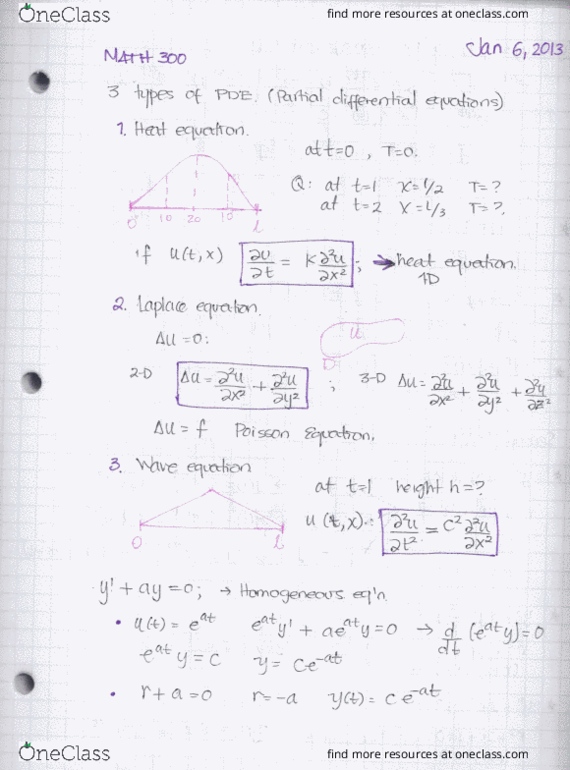 OneClass
find more resources at oneclass.com
MATH 300
Jan 6, 2013
3 types of PDE. (Partial differential equations)
1. Heat equation.
at t=0 , T=0.
Q: at t=1 x=l/2 T=?
at t=2 x=l/3 T=?
0 10 20 10 l
if u(t,x) ∂u/∂t = k ∂²u/∂x² ; → heat equation.
1D
2. Laplace equation.
Δu=0:
u
D
2-D Δu = ∂²u/∂x² + ∂²u/∂y² ; 3-D Δu = ∂²u/∂x² + ∂²u/∂y² + ∂²u/∂z²
Δu = f Poisson Equation.
3. Wave equation
at t=1 height h=?
u(t,x): ∂²u/∂t² = c² ∂²u/∂x²
0 l
y' + ay = 0; → Homogeneous eq'n.
• u(t) = e^at e^at y' + ae^at y = 0 → d/dt (e^at y) = 0
e^at y = c y = ce^-at
• r + a = 0 r = -a y(t) = ce^-at
OneClass
find more resources at oneclass.com